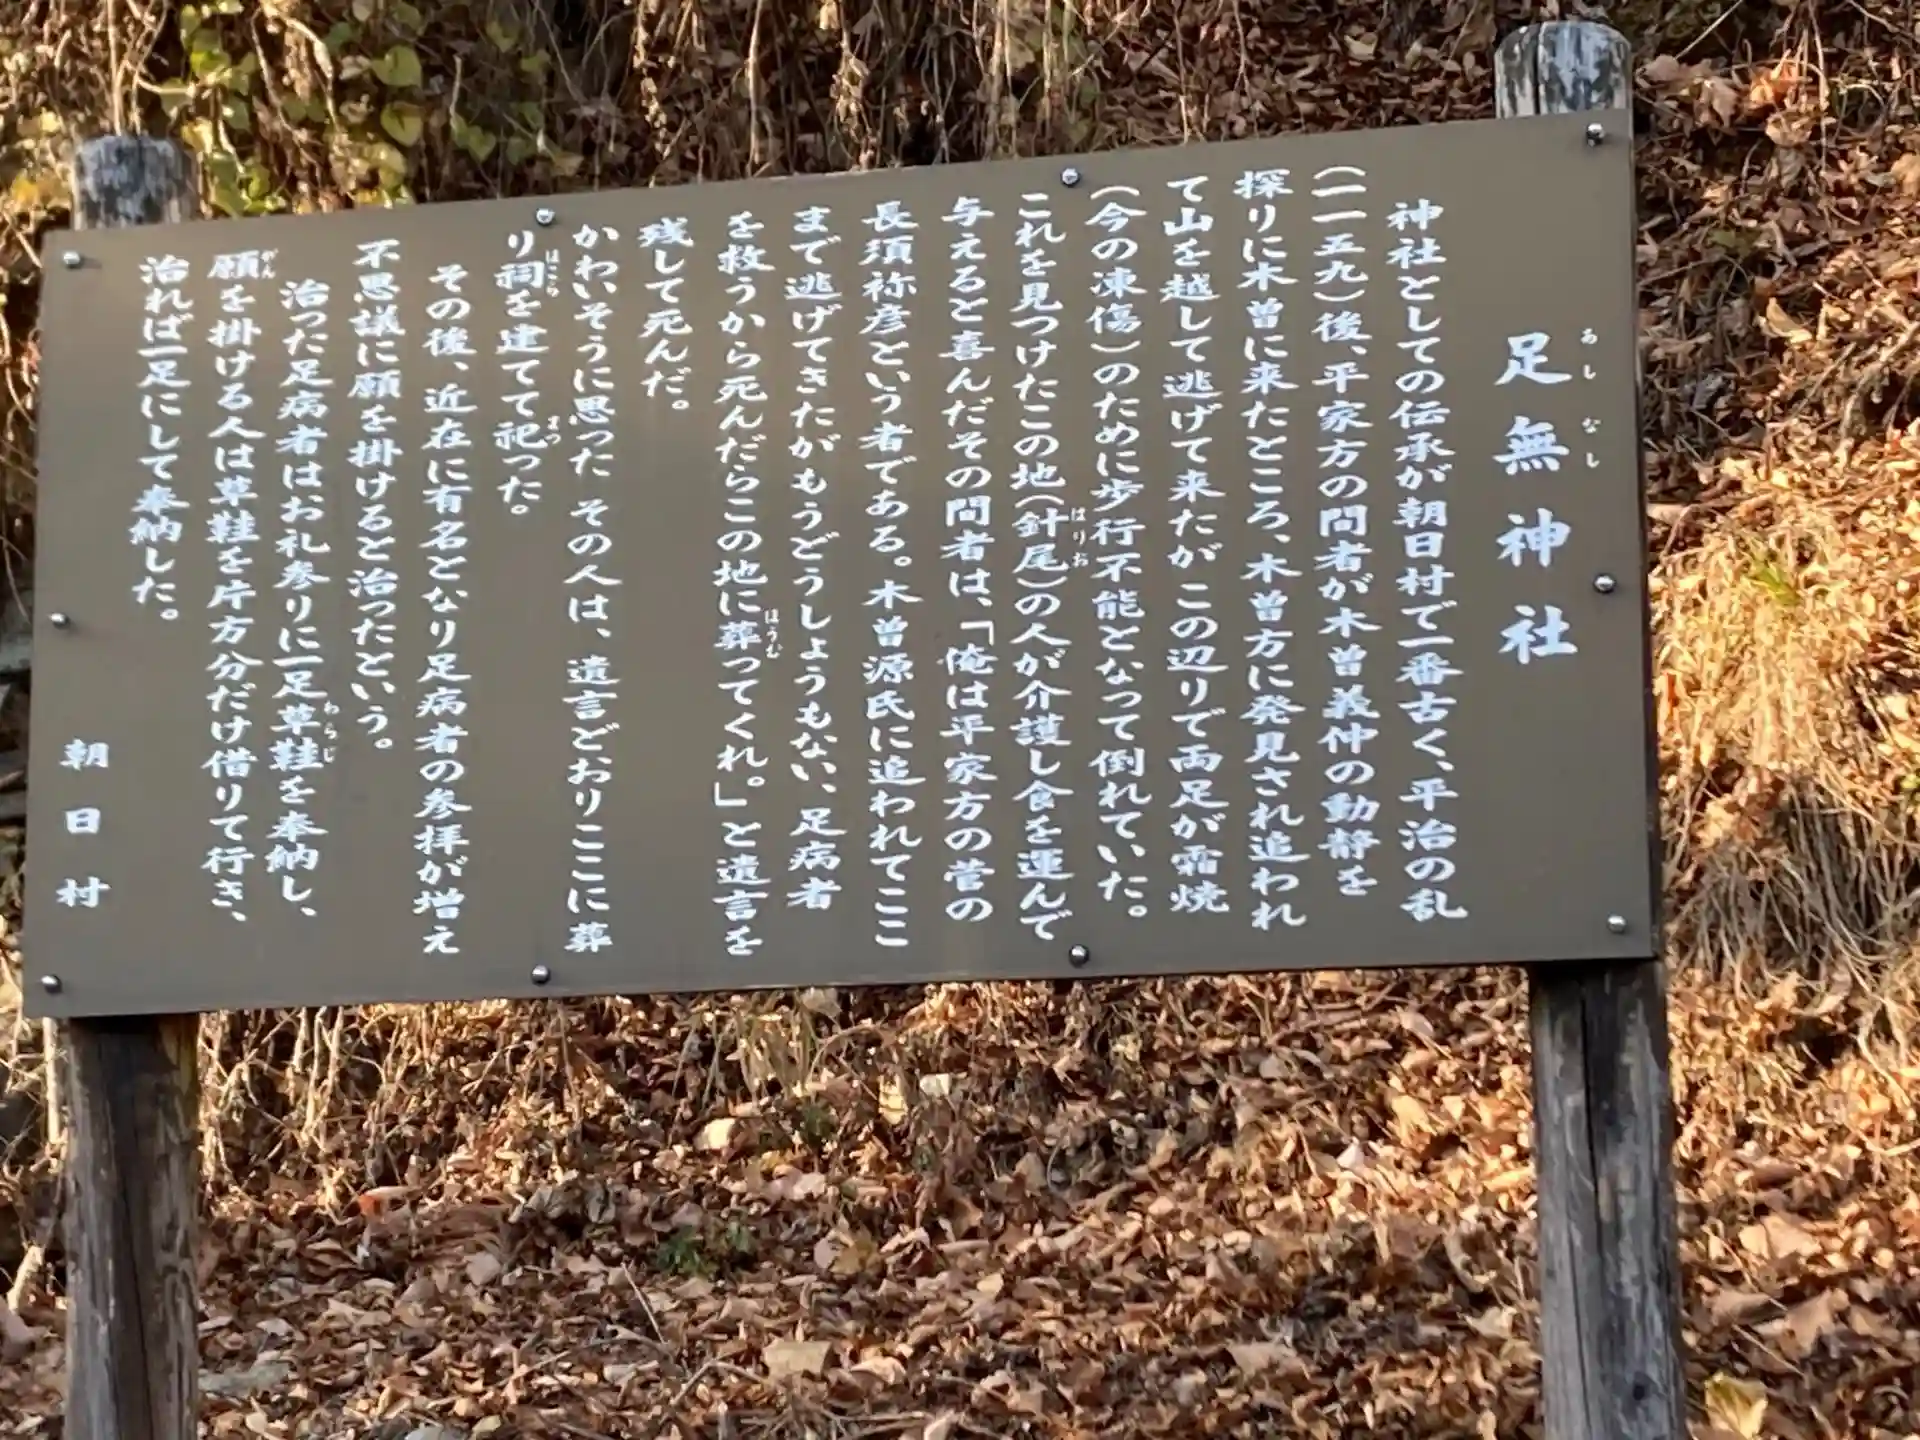 足無神社
神社としての伝承が朝日村で一番古く、平治の乱
(一一五九)後、平家方の間者が木曽義仲の動静を
探りに木曽に来たところ、木曽方に発見され追われ
て山を越して逃げて来たが この辺りで両足が霜焼
(今の凍傷)のために歩行不能となって倒れていた。
これを見つけたこの地(針尾)の人が介護し食を運んで
与えると喜んだその間者は、「俺は平家方の菅の
長須祢彦という者である。木曽源氏に追われてここ
まで逃げてきたがもうどうしょうもない、足病者
を救うから死んだらこの地に葬ってくれ。」と遺言を
残して死んだ。
かわいそうに思った その人は、遺言どおりここに葬
り祠を建てて祀った。
その後、近在に有名となり足病者の参拝が増え
不思議に願を掛けると治ったという。
治った足病者はお礼参りに一足草鞋を奉納し、
願を掛ける人は草鞋を片方分だけ借りて行き、
治れば一足にして奉納した。
朝日村